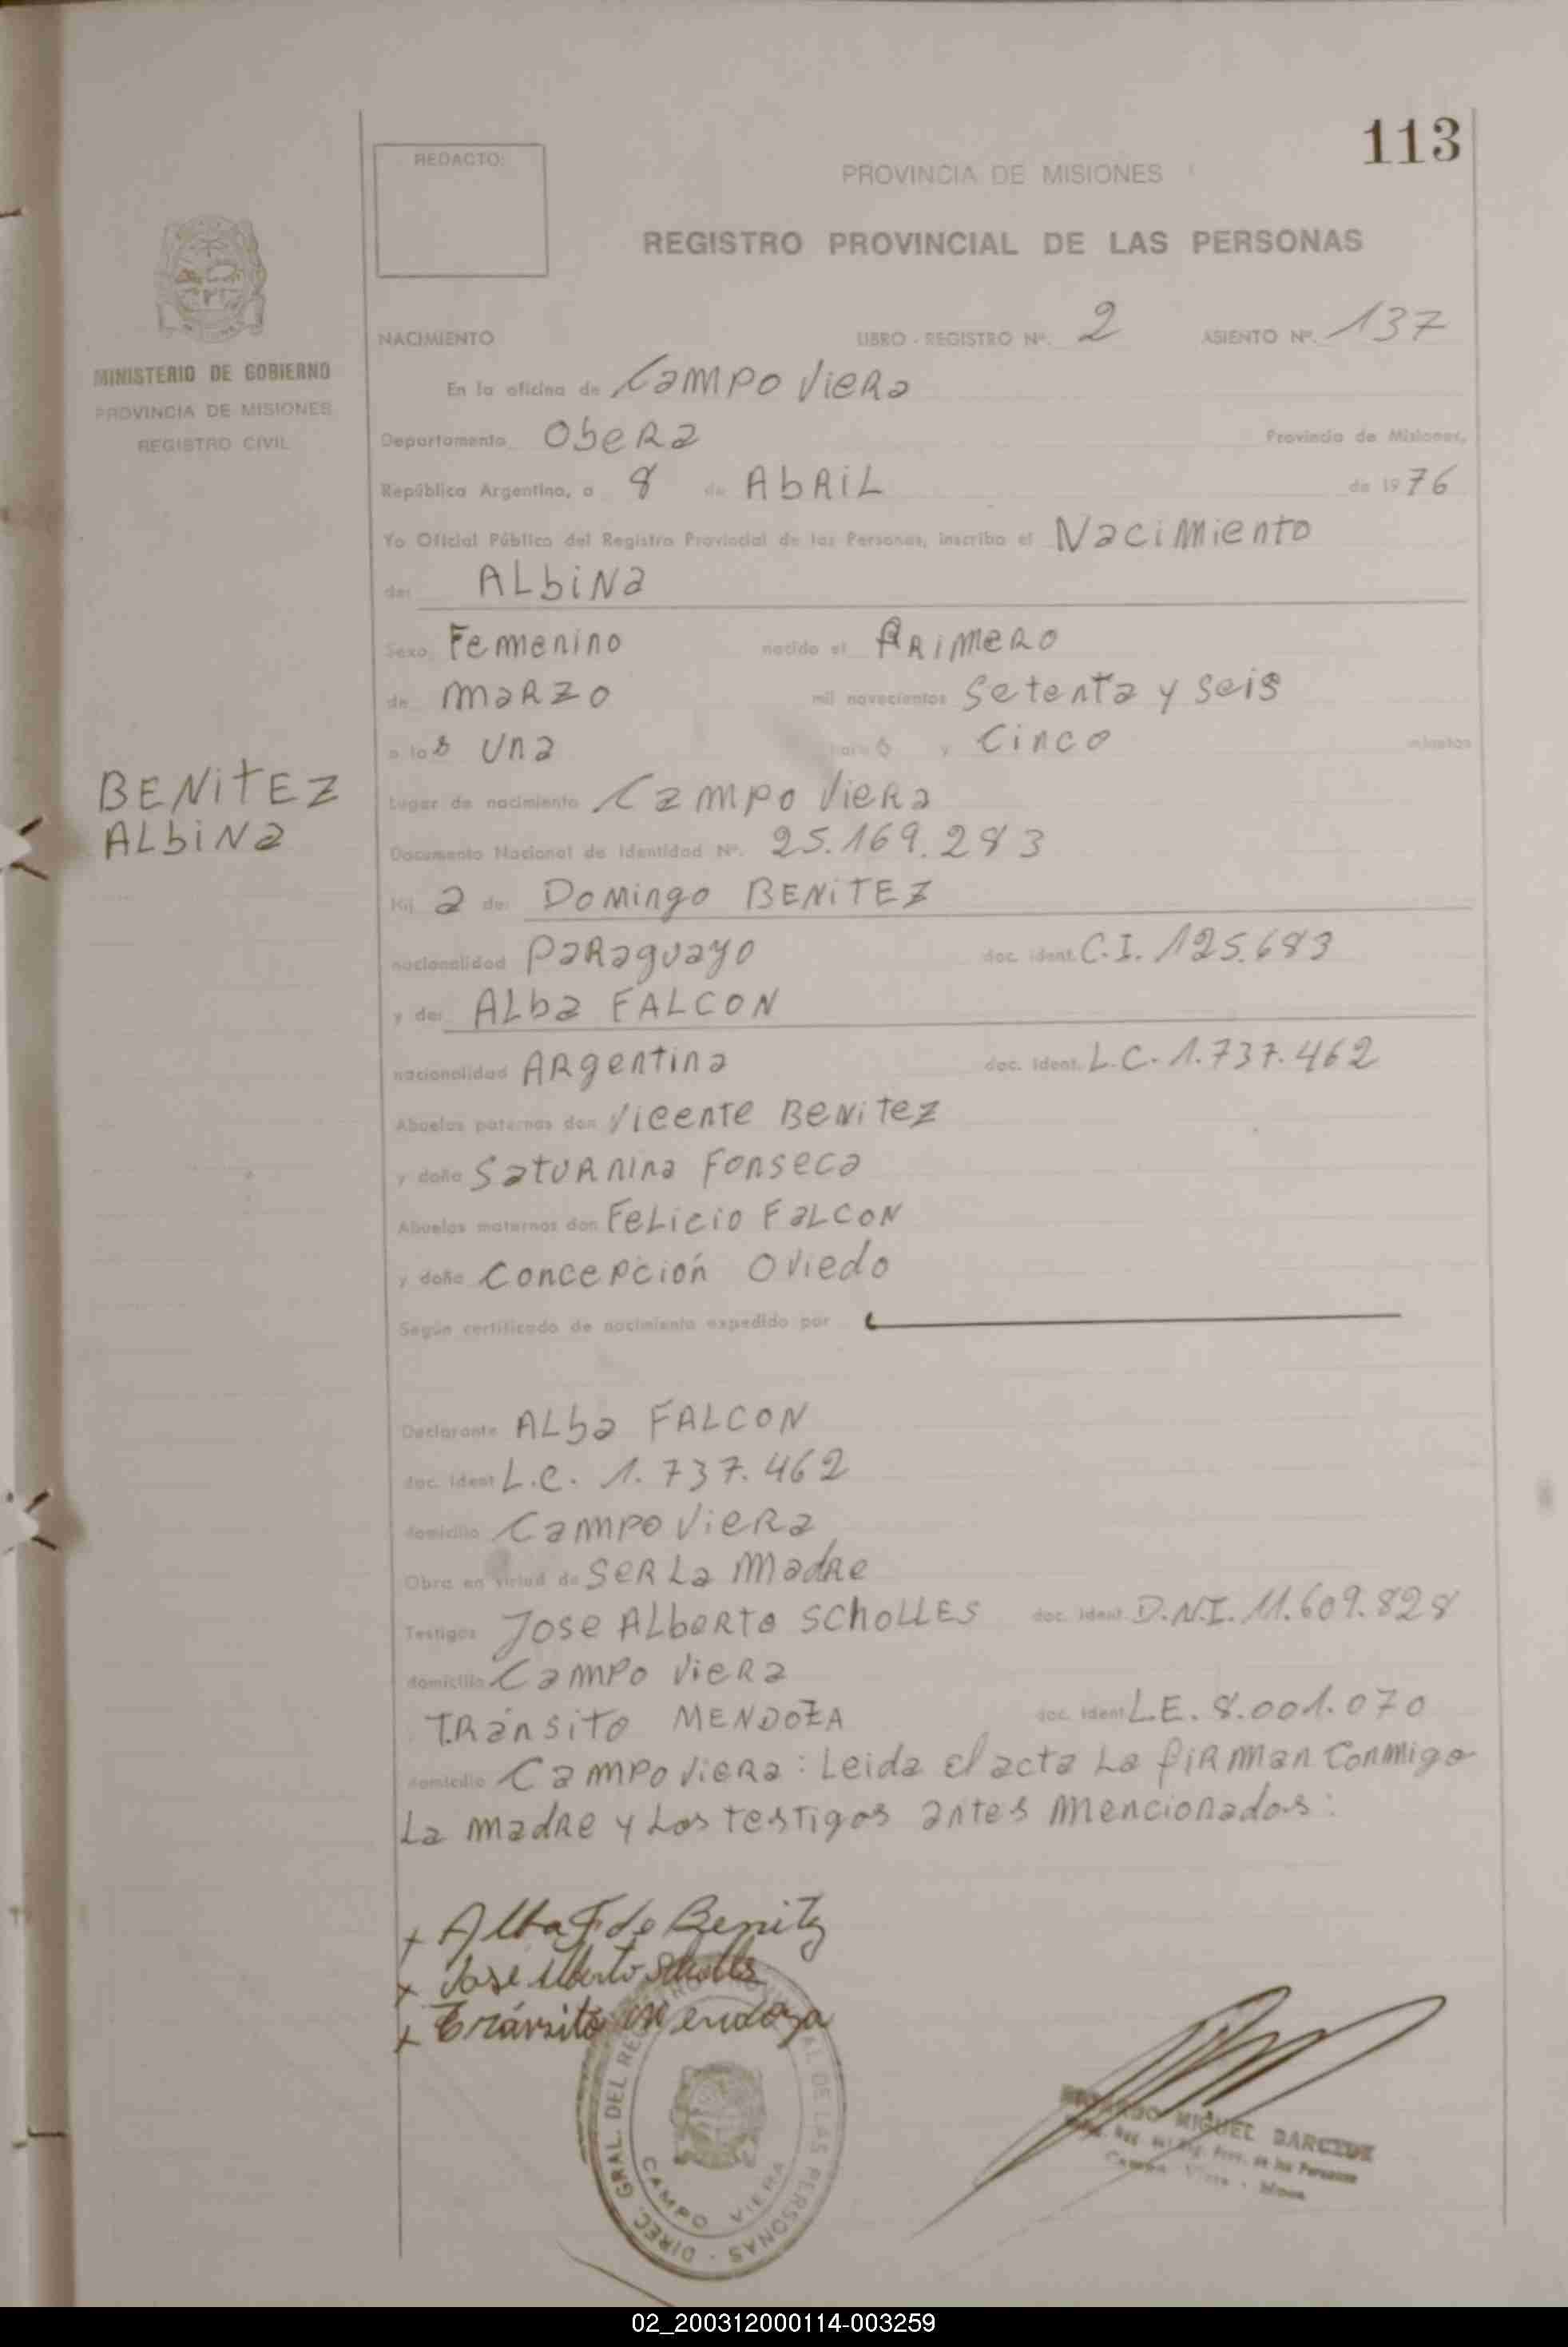 113
REDACTO:
PROVINCIA DE MISIONES
REGISTRO PROVINCIAL DE LAS PERSONAS
MINISTERIO DE GOBIERNO
PROVINCIA DE MISIONES
REGISTRO CIVIL
NACIMIENTO LIBRO - REGISTRO Nº. 2 ASIENTO Nº. 137
En la oficina de Campo Viera
Departamento Obera Provincia de Misiones,
República Argentina, a 8 de AbRiL de 1976
Yo Oficial Público del Registro Provincial de las Personas, inscribo el Nacimiento
de: ALbiNa
Sexo Femenino nacido el PRimeRo
de maRzo mil novecientos Setenta y seis
a las una hora y Cinco minutos
BENiTEZ
ALbiNa
Lugar de nacimiento Campo VieRa
Documento Nacional de Identidad Nº. 25.169.283
Hij a de: Domingo BENiTEZ
nacionalidad PaRaguayo doc. ident. C.I. 125.683
y de: ALba FALCON
nacionalidad ARgentina doc. ident. L.C. 1.737.462
Abuelos paternos don Vicente BeNiTeZ
y doña SatuRnina Fonseca
Abuelos maternos don FeLicio FaLCON
y doña Concepción Oviedo
Según certificado de nacimiento expedido por
Declarante ALba FALCON
doc. ident L.C. 1.737.462
domicilio Campo VieRa
Obra en virtud de SeR La madRe
Testigos Jose ALbeRTo SChoLLES doc. ident. D.N.I. 11.609.828
domicilio Campo VieRa
TRánsiTo MENDOZA doc. ident L.E. 8.001.070
domicilio Campo VieRa: Leida el acta La fiRman Conmigo
La madRe y Los testigos antes mencionados:
+ Alba F. de Benitz
x Jose Alberto Scholles
+ Tránsito Mendoza
DIREC. GRAL. DEL DE LAS PERSONAS
CAMPO VIERA
MIGUEL
Campo Viera
02_200312000114-003259